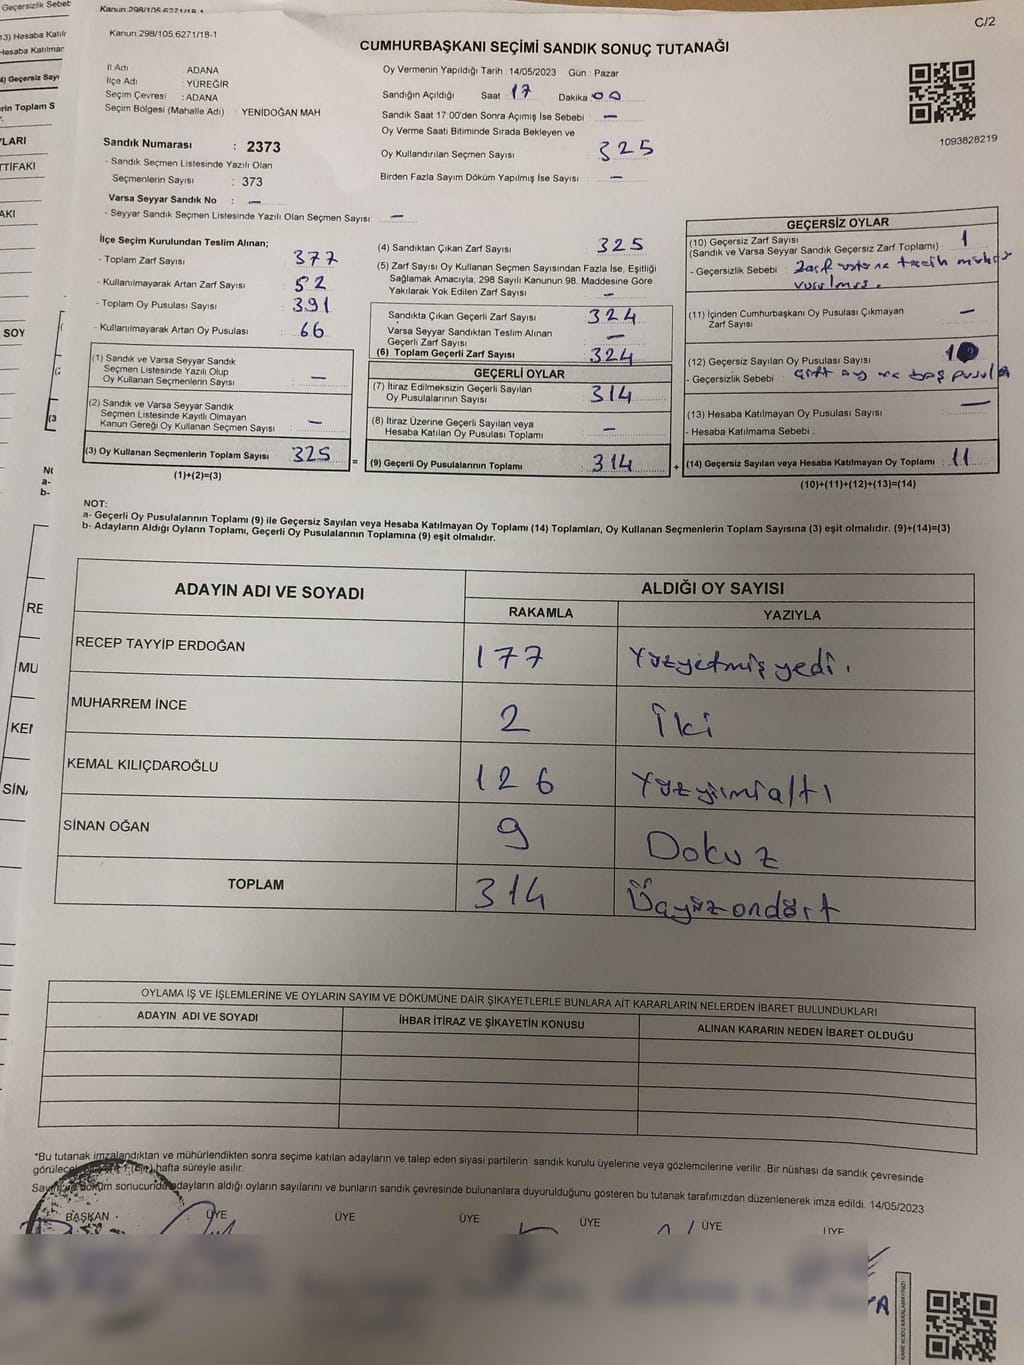 C/2
Kanun.298/105,6271/18-1
CUMHURBAŞKANI SEÇİMİ SANDIK SONUÇ TUTANAĞI
İl Adı : ADANA
İlçe Adı : YÜREĞİR
Seçim Çevresi : ADANA
Seçim Bölgesi (Mahalle Adı) : YENİDOĞAN MAH
Oy Vermenin Yapıldığı Tarih : 14/05/2023 Gün : Pazar
Sandığın Açıldığı Saat : 17 Dakika : 00
Sandık Saat 17.00'den Sonra Açımış İse Sebebi : —
Oy Verme Saati Bitiminde Sırada Bekleyen ve
Oy Kullandırılan Seçmen Sayısı : 325
Birden Fazla Sayım Döküm Yapılmış İse Sayısı : —
1093828219
Sandık Numarası : 2373
- Sandık Seçmen Listesinde Yazılı Olan
Seçmenlerin Sayısı : 373
Varsa Seyyar Sandık No : —
- Seyyar Sandık Seçmen Listesinde Yazılı Olan Seçmen Sayısı: —
İlçe Seçim Kurulundan Teslim Alınan;
- Toplam Zarf Sayısı : 377
- Kullanılmayarak Artan Zarf Sayısı : 52
- Toplam Oy Pusulası Sayısı : 391
- Kullanılmayarak Artan Oy Pusulası : 66
(1) Sandık ve Varsa Seyyar Sandık
Seçmen Listesinde Yazılı Olup
Oy Kullanan Seçmenlerin Sayısı : —
(2) Sandık ve Varsa Seyyar Sandık
Seçmen Listesinde Kayıtlı Olmayan
Kanun Gereği Oy Kullanan Seçmen Sayısı : —
(3) Oy Kullanan Seçmenlerin Toplam Sayısı : 325
(1)+(2)=(3)
(4) Sandıktan Çıkan Zarf Sayısı : 325
(5) Zarf Sayısı Oy Kullanan Seçmen Sayısından Fazla İse, Eşitliği
Sağlamak Amacıyla, 298 Sayılı Kanunun 98. Maddesine Göre
Yakılarak Yok Edilen Zarf Sayısı : —
Sandıkta Çıkan Geçerli Zarf Sayısı : 324
Varsa Seyyar Sandıktan Teslim Alınan
Geçerli Zarf Sayısı : —
(6) Toplam Geçerli Zarf Sayısı : 324
GEÇERLİ OYLAR
(7) İtiraz Edilmeksizin Geçerli Sayılan
Oy Pusulalarının Sayısı : 314
(8) İtiraz Üzerine Geçerli Sayılan veya
Hesaba Katılan Oy Pusulası Toplamı : —
(9) Geçerli Oy Pusulalarının Toplamı : 314
=
+
GEÇERSİZ OYLAR
(10) Geçersiz Zarf Sayısı : 1
(Sandık ve Varsa Seyyar Sandık Geçersiz Zarf Toplamı)
- Geçersizlik Sebebi : Zarf üstüne tercih mührü
vurulmuş.
(11) İçinden Cumhurbaşkanı Oy Pusulası Çıkmayan
Zarf Sayısı : —
(12) Geçersiz Sayılan Oy Pusulası Sayısı : 10
- Geçersizlik Sebebi : Çift oy ve boş pusula
(13) Hesaba Katılmayan Oy Pusulası Sayısı : —
- Hesaba Katılmama Sebebi :
(14) Geçersiz Sayılan veya Hesaba Katılmayan Oy Toplamı : 11
(10)+(11)+(12)+(13)=(14)
NOT:
a- Geçerli Oy Pusulalarının Toplamı (9) ile Geçersiz Sayılan veya Hesaba Katılmayan Oy Toplamı (14) Toplamları, Oy Kullanan Seçmenlerin Toplam Sayısına (3) eşit olmalıdır. (9)+(14)=(3)
b- Adayların Aldığı Oyların Toplamı, Geçerli Oy Pusulalarının Toplamına (9) eşit olmalıdır.
ADAYIN ADI VE SOYADI ALDIĞI OY SAYISI
RAKAMLA YAZIYLA
RECEP TAYYİP ERDOĞAN 177 Yüzyetmişyedi.
MUHARREM İNCE 2 İki
KEMAL KILIÇDAROĞLU 126 Yüzyirmialtı
SİNAN OĞAN 9 Dokuz
TOPLAM 314 Üçyüzondört
OYLAMA İŞ VE İŞLEMLERİNE VE OYLARIN SAYIM VE DÖKÜMÜNE DAİR ŞİKAYETLERLE BUNLARA AİT KARARLARIN NELERDEN İBARET BULUNDUKLARI
ADAYIN ADI VE SOYADI İHBAR İTİRAZ VE ŞİKAYETİN KONUSU ALINAN KARARIN NEDEN İBARET OLDUĞU
*Bu tutanak imzalandıktan ve mühürlendikten sonra seçime katılan adayların ve talep eden siyasi partilerin sandık kurulu üyelerine veya gözlemcilerine verilir .Bir nüshası da sandık çevresinde
görülecek 1 (bir) hafta süreyle asılır.
Sayım ve döküm sonucunda adayların aldığı oyların sayılarını ve bunların sandık çevresinde bulunanlara duyurulduğunu gösteren bu tutanak tarafımızdan düzenlenerek imza edildi. 14/05/2023
BAŞKAN ÜYE ÜYE ÜYE ÜYE ÜYE ÜYE